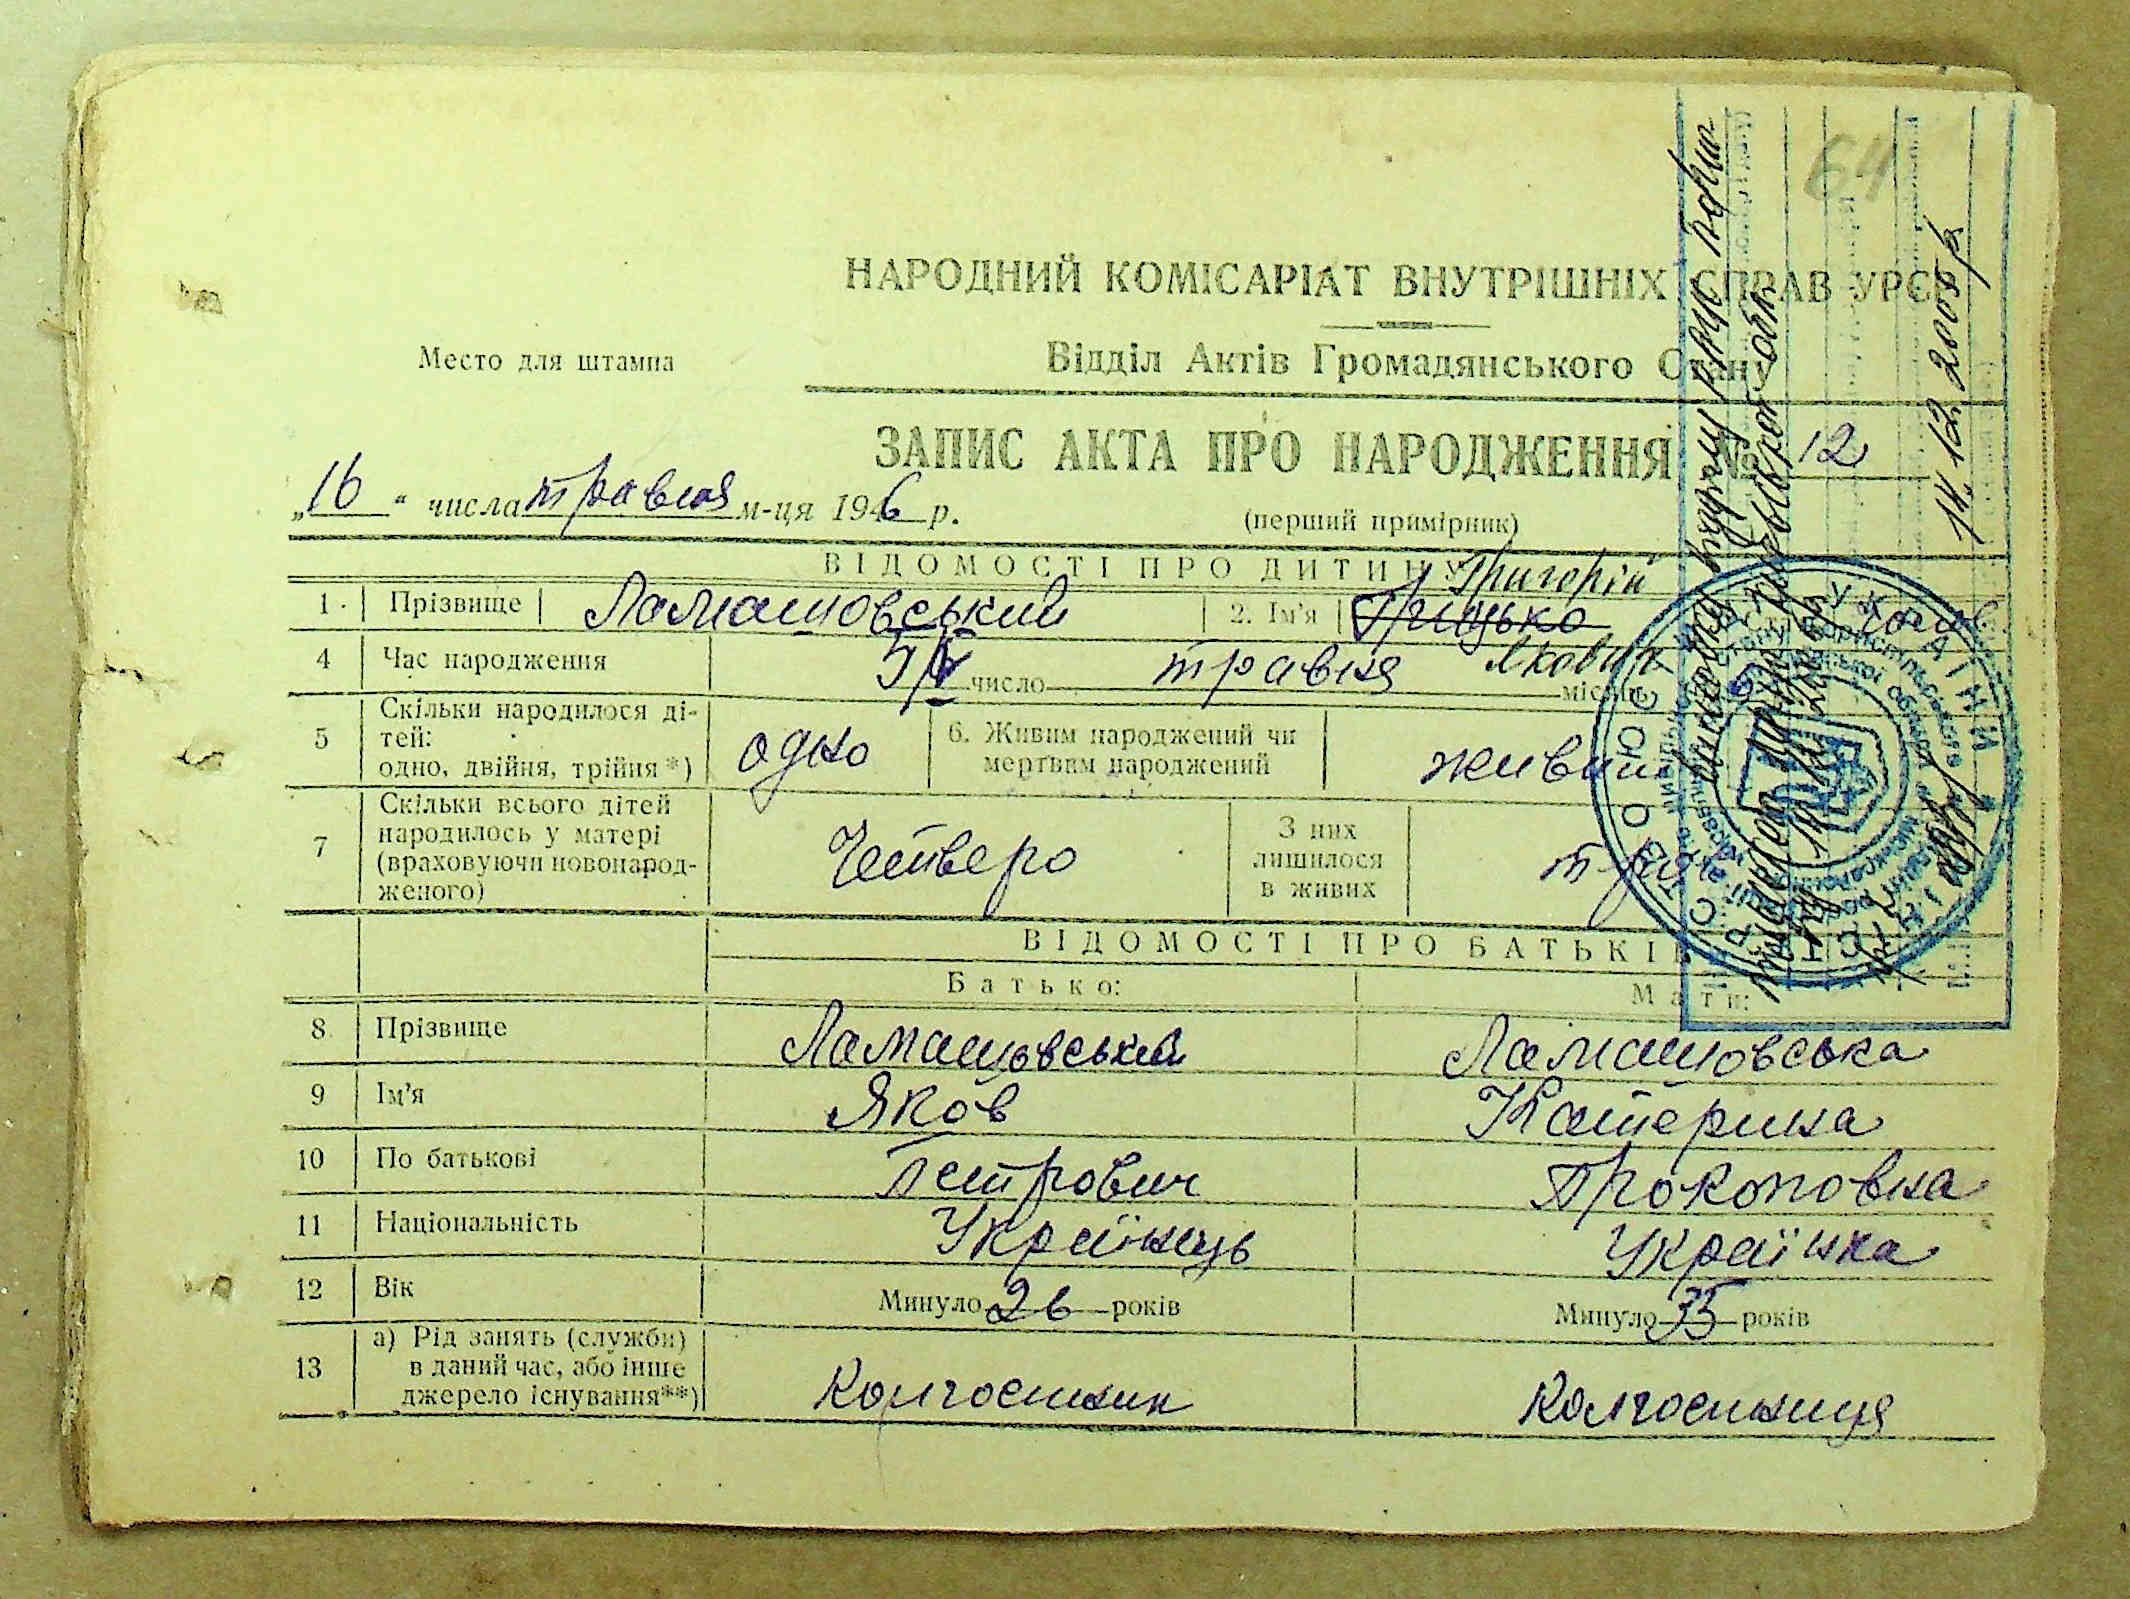 64
НАРОДНИЙ КОМІСАРІАТ ВНУТРІШНІХ СПРАВ УРСР
Место для штампа
Відділ Актів Громадянського Стану
ЗАПИС АКТА ПРО НАРОДЖЕННЯ № 12
„16“ числа травня м-ця 1946 р.
(перший примірник)
ВІДОМОСТІ ПРО ДИТИНУ
Григорій
1. Прізвище Ламашовський 2. Ім'я Грицько чолов.
Якович
4 Час народження 5/V число травня місяць
5 Скільки народилося дітей: одно, двійня, трійня*) одно 6. Живим народжений чи мертвим народжений живим
7 Скільки всього дітей народилось у матері (враховуючи новонародженого) Четверо З них лишилося в живих троє
ВІДОМОСТІ ПРО БАТЬКІВ
Батько: Мати:
8 Прізвище Ламашовський Ламашовська
9 Ім'я Яков Катерина
10 По батькові Петрович Прокоповна
11 Національність Українець Українка
12 Вік Минуло 26 років Минуло 35 років
13 а) Рід занять (служби) в даний час, або інше джерело існування**) Колгоспник Колгоспниця
14.12.2005 р
УКРАЇНИ